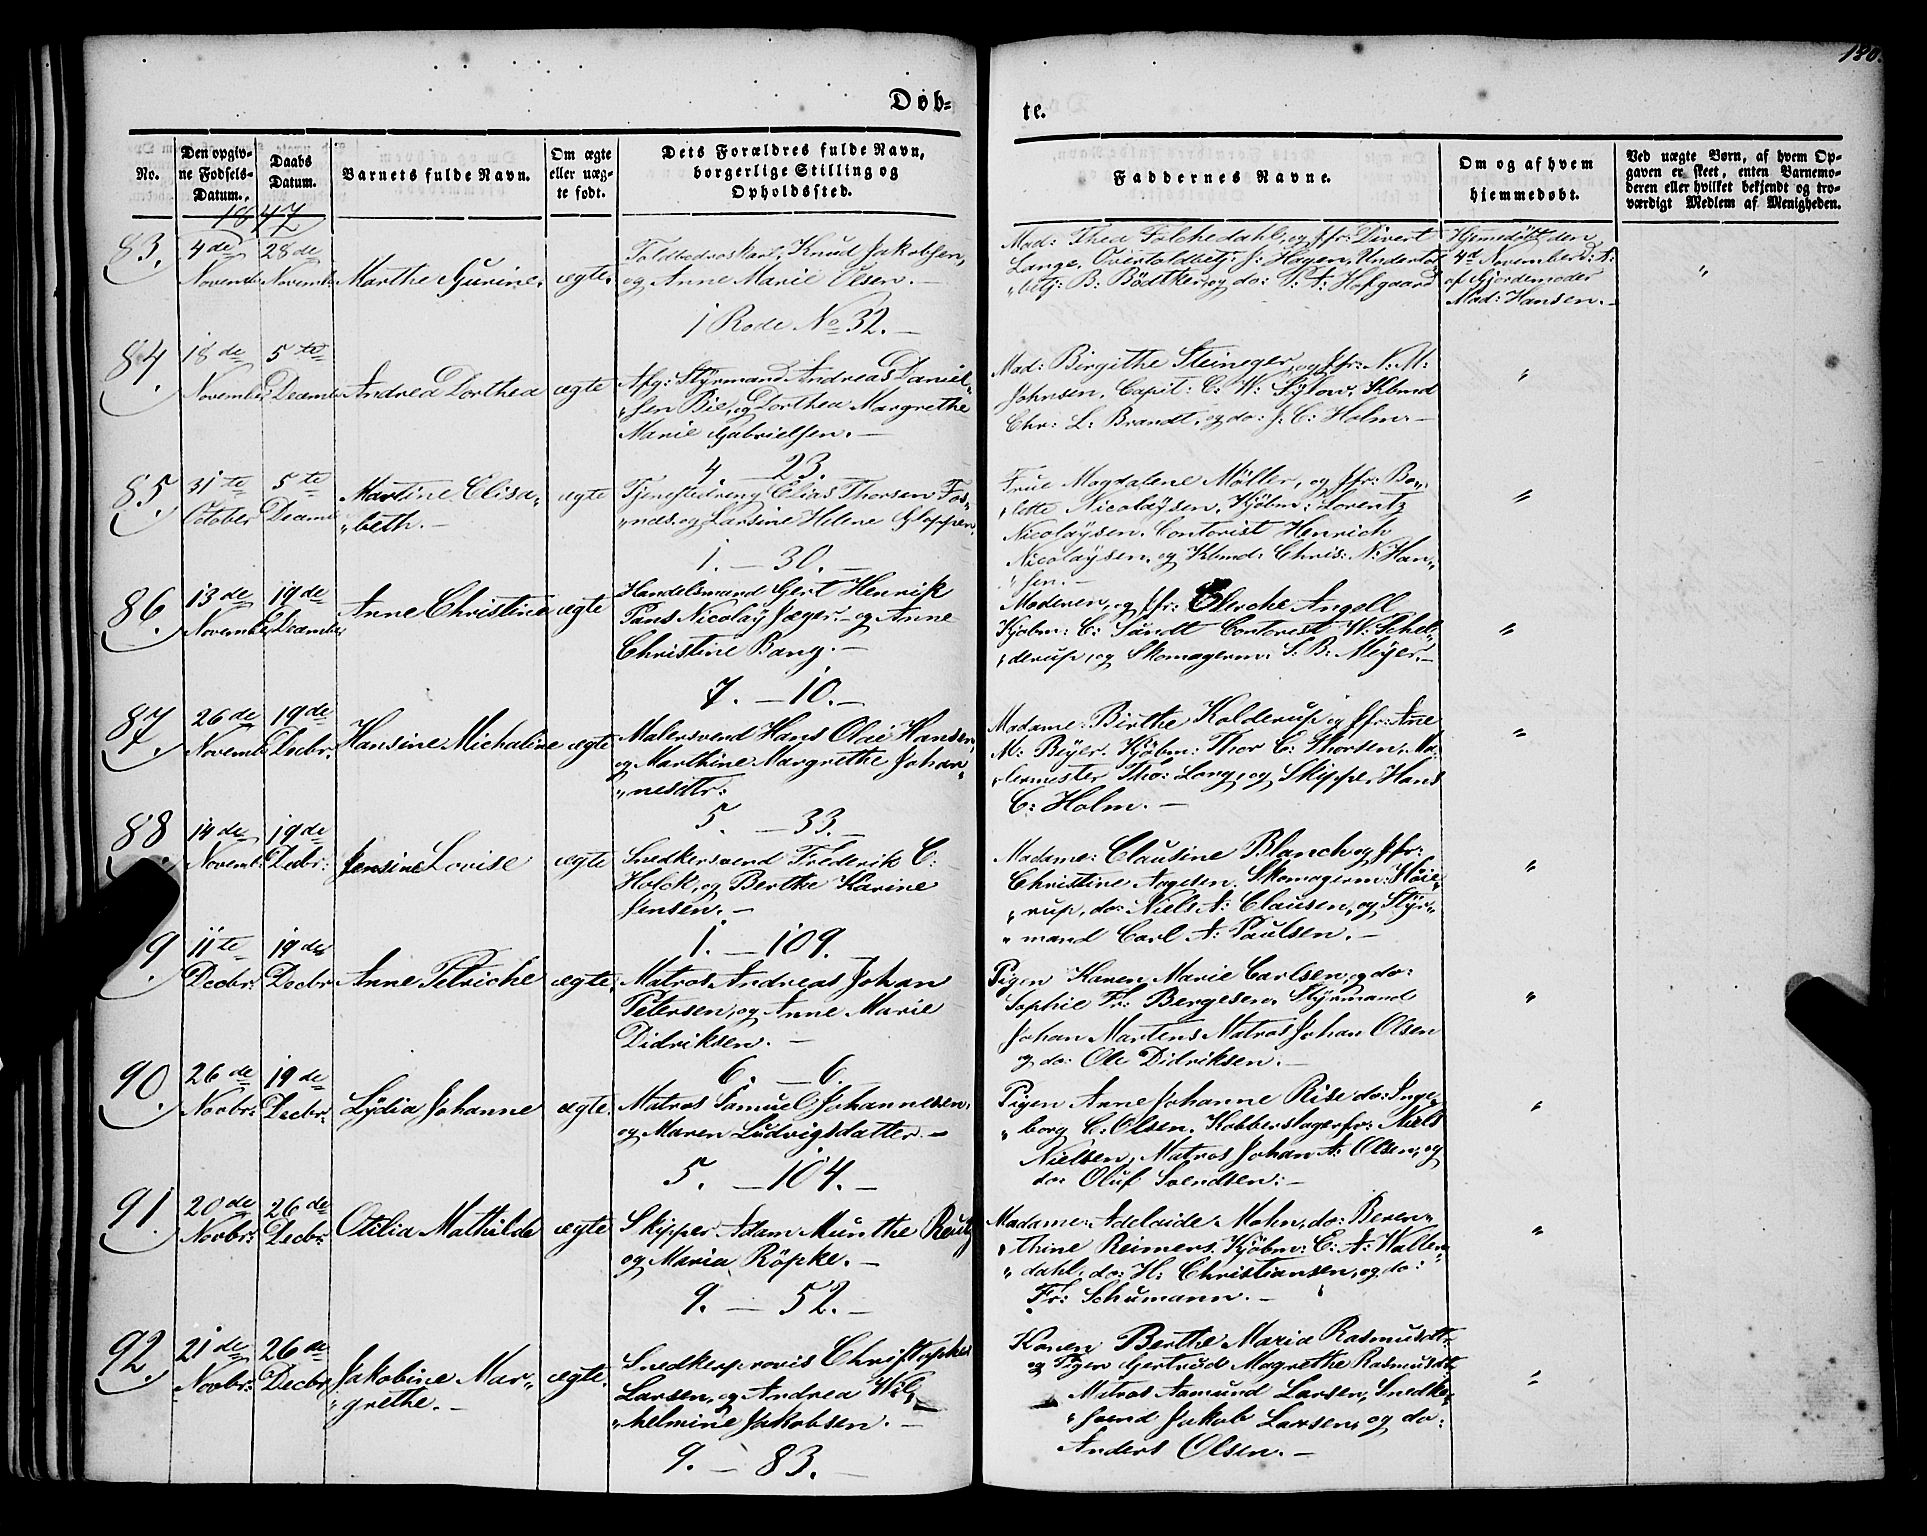 180.
Døb=
te.
No.
Den opgiv=
ne Fødsels=
Datum.
Daabs
Datum.
Barnets fulde Navn.
Om ægte
eller uæg=
te født.
Dets Forældres fulde Navn,
borgerlige Stilling og
Opholdssted.
Faddernes Navne.
Om og af hvem
hjemmedøbt.
Ved uægte Børn, af hvem Op=
gaven er skeet, enten Barnemo=
deren eller hvilket bekjendt og tro=
værdigt Medlem af Menigheden.
1847
83.
4de
Novemb:
28de
Novemb:
Marthe Gurine.
ægte.
Toldbodroskarl Knud Jakobsen,
og Anne Marie Olsen.—
1 Rode No 32.—
Mad: Thea Folchedahl, og Jfr: Divert
Lange, Overtoldbetj: J: Hagen, Undertold
"betj: B: Bødtker, og do: P: A: Hofgaard
Hjemedøbt den
4d November d: A:
af Gjordemoder
Mad: Hansen.—
"
84.
18de
November
5te
Decembr
Andrea Dorthea
ægte
Afg: Styrmand Andreas Daniel-
"sen Bie, og Dorthea Margrethe
Marie Gabrielsen.—
4 — 23.
Mad: Birgithe Steineger, og Jfr: N: M:
Johnsen, Capit: C: W: Sylow, Kbmd
Chr: L: Brandt, og do: J: C: Holm.—
"
85.
31te
October
5te
Decembr
Martine Elisa-
"beth.—
ægte
Tjenestedreng Elias Thorsen Fos-
"næs, og Larsine Helene Gloppen
1.— 30.—
Frue Magdalene Møller, og Jfr: Bo-
"lette Nicolaysen, Kjøbm: Lorentz
Nicolaysen, Contorist Henrich
Nicolaysen, og Kbmd: Chris: N: Han-
"sen.—
"
86.
13de
November
19de
December
Anne Christine
ægte
Handelsmand Gert Henrik
Pans Nicolay Jæger.— og Anne
Christine Bang.—
7.— 10.—
Moderen, og Jfr: Blerche Angell
Kjøbm: C: Sundt Contorist W: Schel-
"derup, og Skomagerm: S: B: Meyer.—
"
87.
26de
Novemb
19de
Decbr.
Hansine Michaline
ægte
Malersvend Hans Olai Hansen,
og Marthine Margrethe Johan-
"nesdtr:
5.— 33.—
Madame: Birthe Kolderup, og Jfr: Ane
M: Beyer. Kjøbm: Thor C: Thorsen, Ma-
"lermester Tho: Lang, og Skipper Hans
C: Holm.—
"
88
14de
Novemb:
19de
Decbr:
Jensine Lovise
ægte
Snedkersvend Frederik C:
Holck, og Berthe Karine
Jensen.—
1.— 109.
Madame: Clausine Blanch og Jfr:
Christine Aagesen. Skomagerm: Høie-
"rup, do: Niels A: Clausen, og Styr-
"mand Carl A: Paulsen.—
"
9.
11te
Decbr:
19de
Decbr
Anne Petriche
ægte.
Matros Andreas Johan
Petersen, og Anne Marie
Didriksen.—
6.— 6.—
Pigen Karen Marie Carlsen, og do:
Sophie Fr: Bergesen, Styrmand
Johan Martens Matros Johan Olsen
og do: Ole Didriksen.—
"
90.
26de
Novbr:
19de
Decbr.
Lydia Johanne
ægte.
Matros Samuel Johannesen,
og Maren Ludvigsdatter.—
5.— 104.—
Pigen Anne Johanne Rise do: Inge-
"borg C: Olsen, Kobberslagersv: Niels
Nielsen, Matros Johan A: Olsen, og
do: Oluf Svendsen:—
"
91.
20de
Novbr:
26de
Decbr:
Otilia Mathilde
ægte
Skipper Adam Munthe Reutz
og Maria Röpke.—
9.— 52.—
Madame: Adelaide Mohn, do: Beren-
"thine Reimers. Kjøbm: C: A: Wallen-
"dahl, do: H: Christiansen, og do:
Fr: Schumann.—
"
92.
21de
Novbr:
26de
Decbr,
Jakobine Mar-
"grethe.—
ægte.
Snedkerprovis Christopher
Larsen, og Andrea Wil-
"helmine Jakobsen.—
9.— 83.—
Konen Berthe Maria Rasmusdtr
og Pigen Gertrud Magrethe Rasmusdtr,
Matros Aamund Larsen, Snedker
"svend Jakob Larsen, og do:
Anders Olsen.—
"